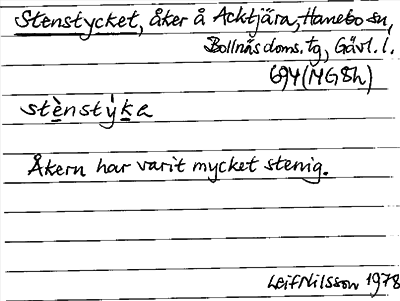 Stenstycket, åker å Acktjära, Hanebo sn,
Bollnäs doms. tg, Gävl. l.
694 (NG8h)
stènstýka
Åkern har varit mycket stenig.
Leif Nilsson 1978